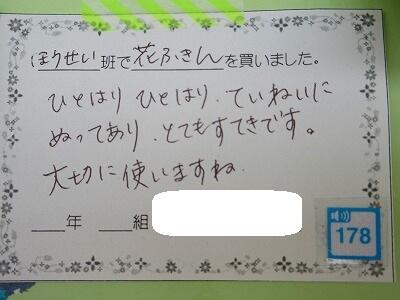 ほうせい班で花ふきんを買いました。
ひとはり ひとはり、ていねいに
ぬってあり、とてもすてきです。
大切に使いますね。
年 組
178